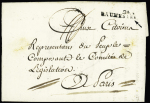 Aux Citoyens
Representans du Peuple
Composant le Comité de
Législation
à Paris